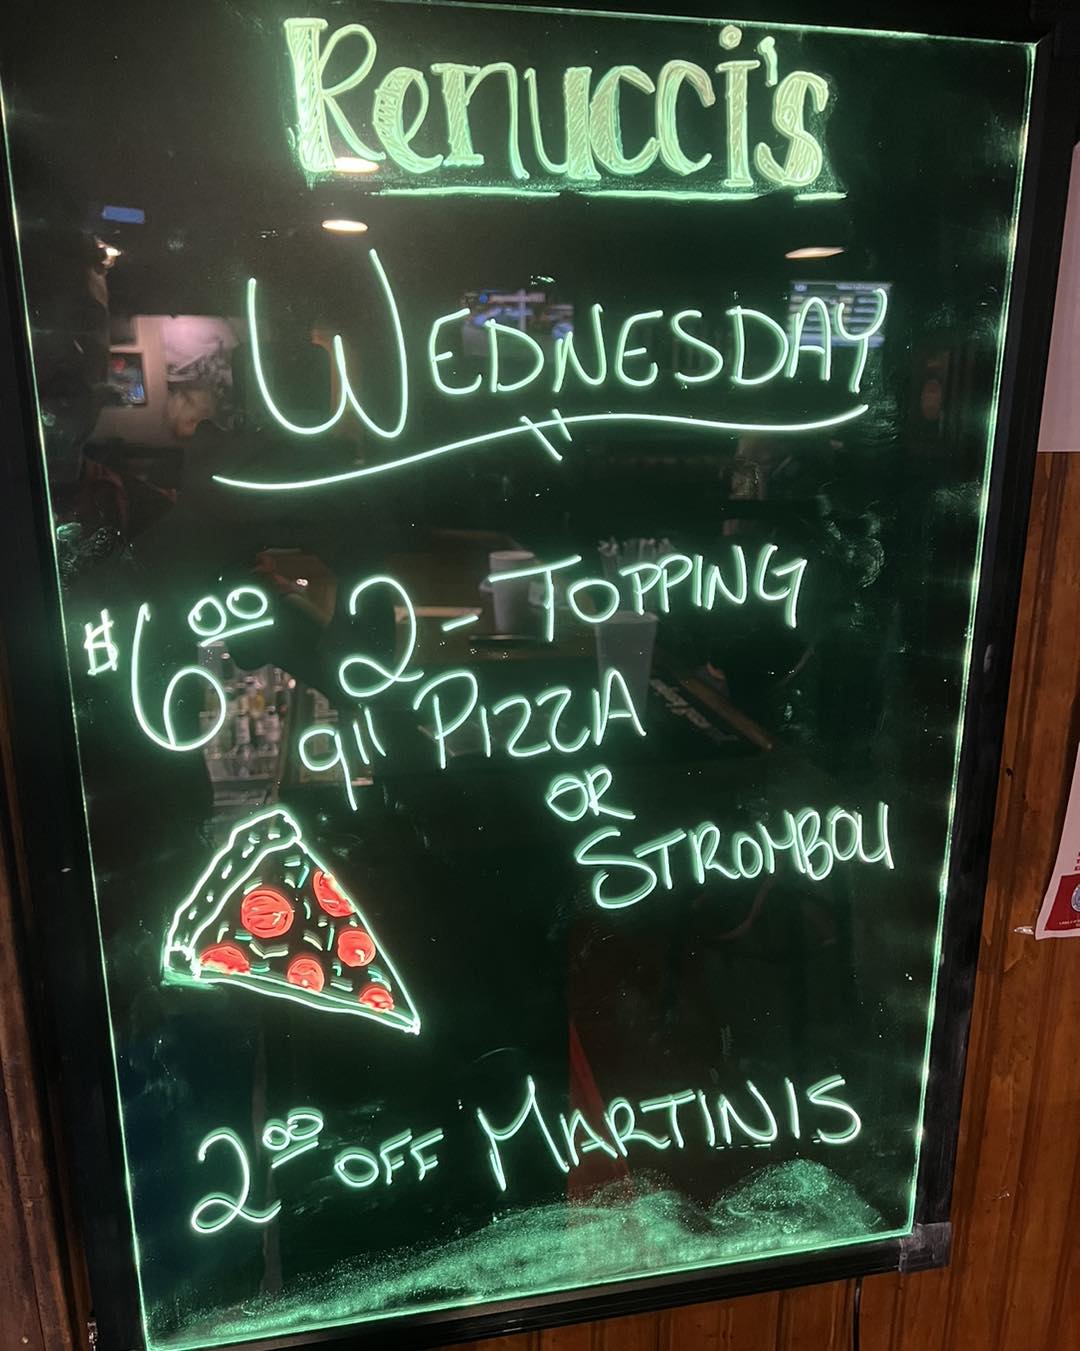 Renucci's
WEDNESDAY
$6.00 2-TOPPING
9" PIZZA
OR
STROMBOLI
2.00 OFF MARTINIS